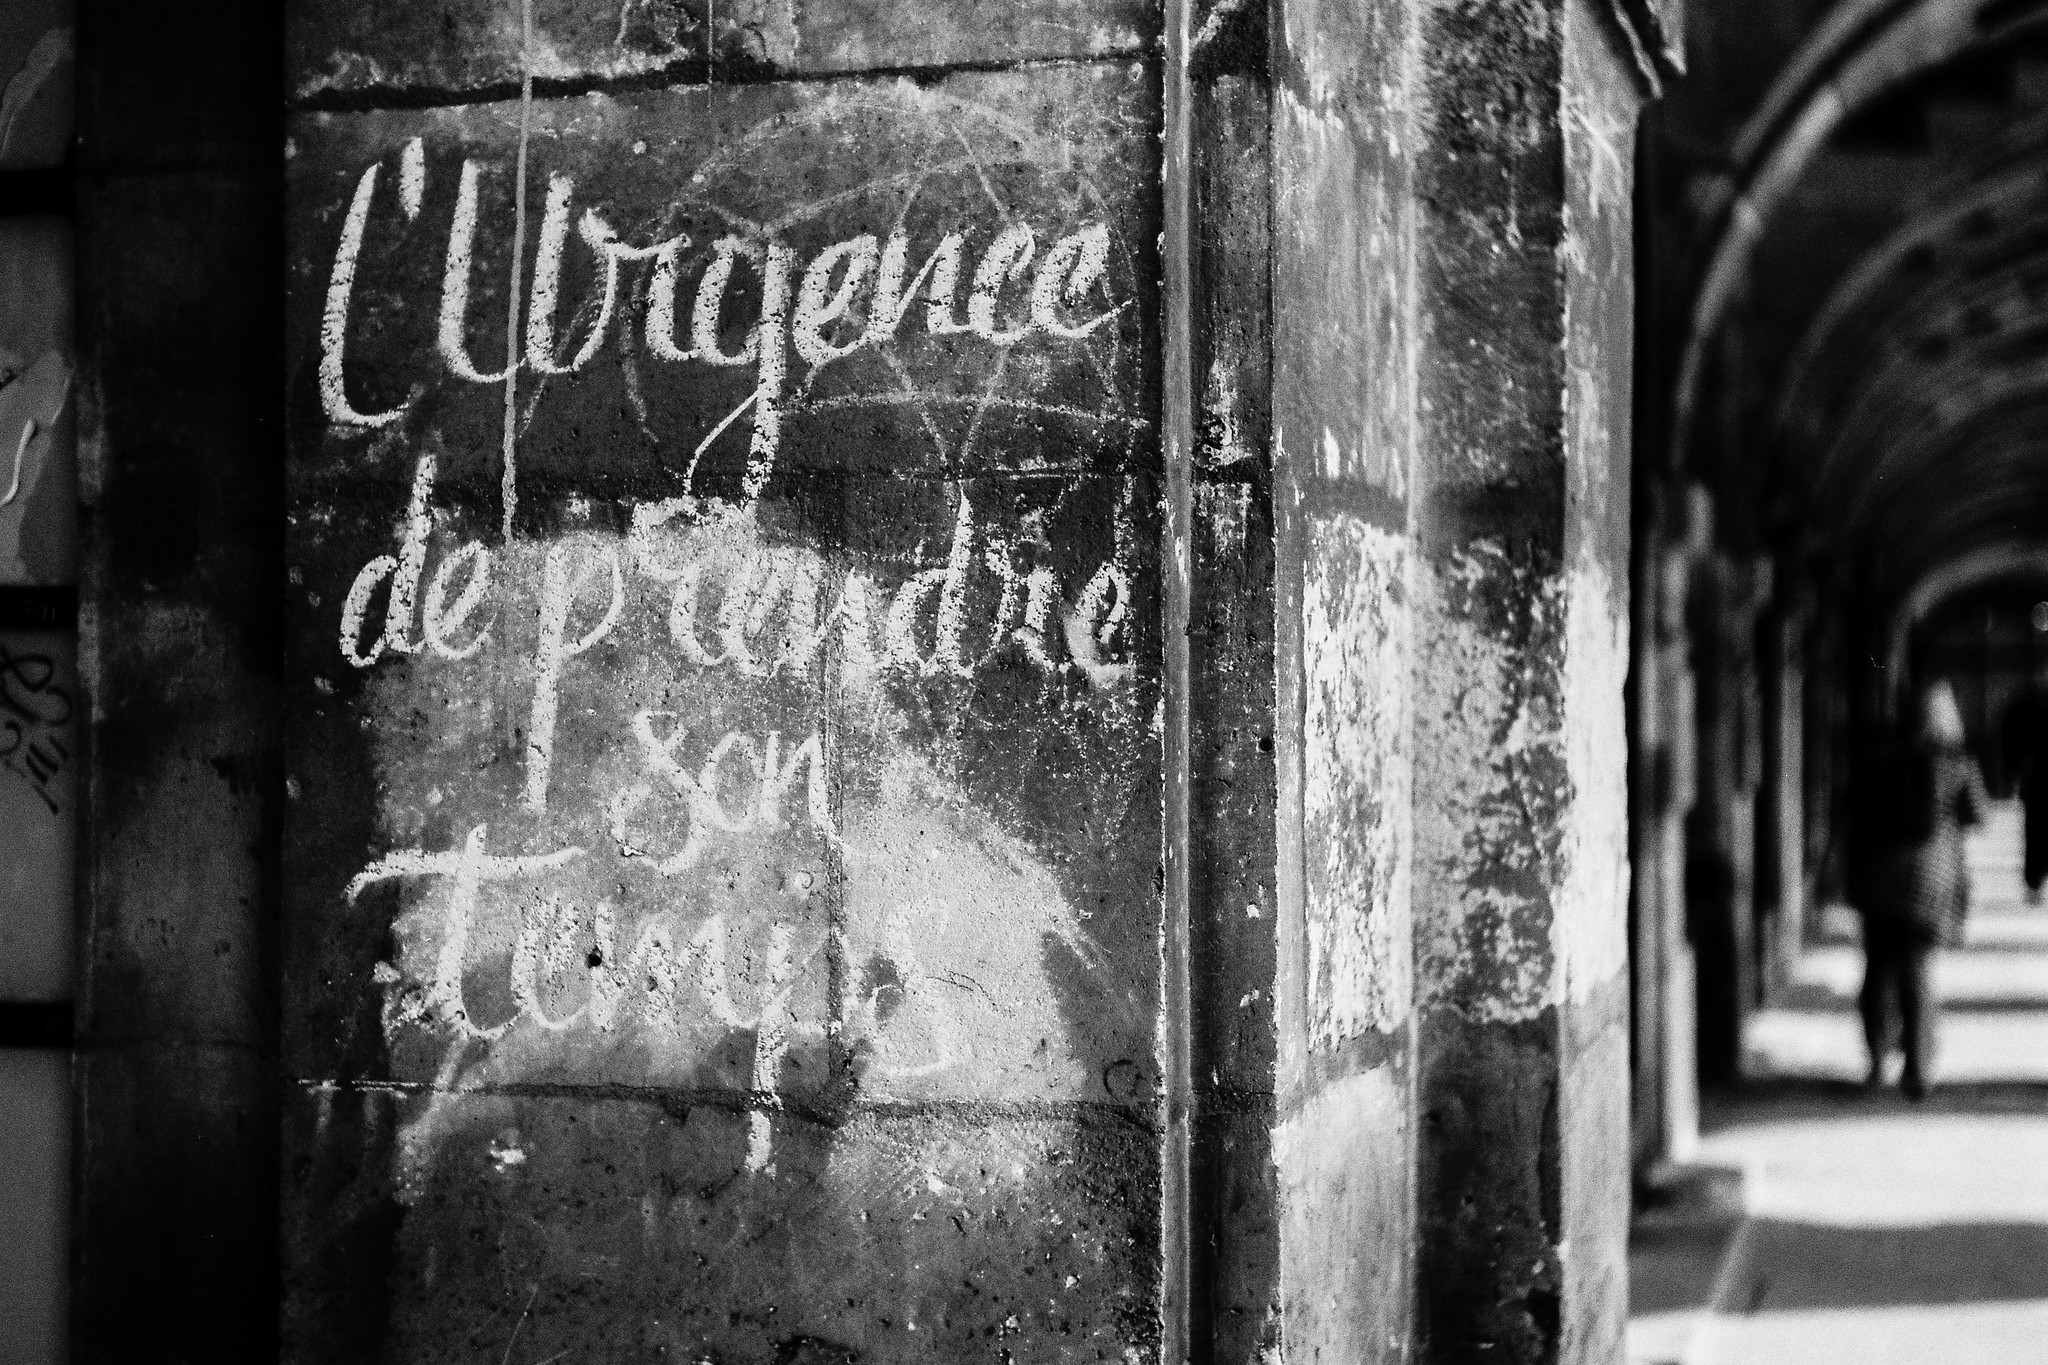 l'Urgence
de prendre
son
temps